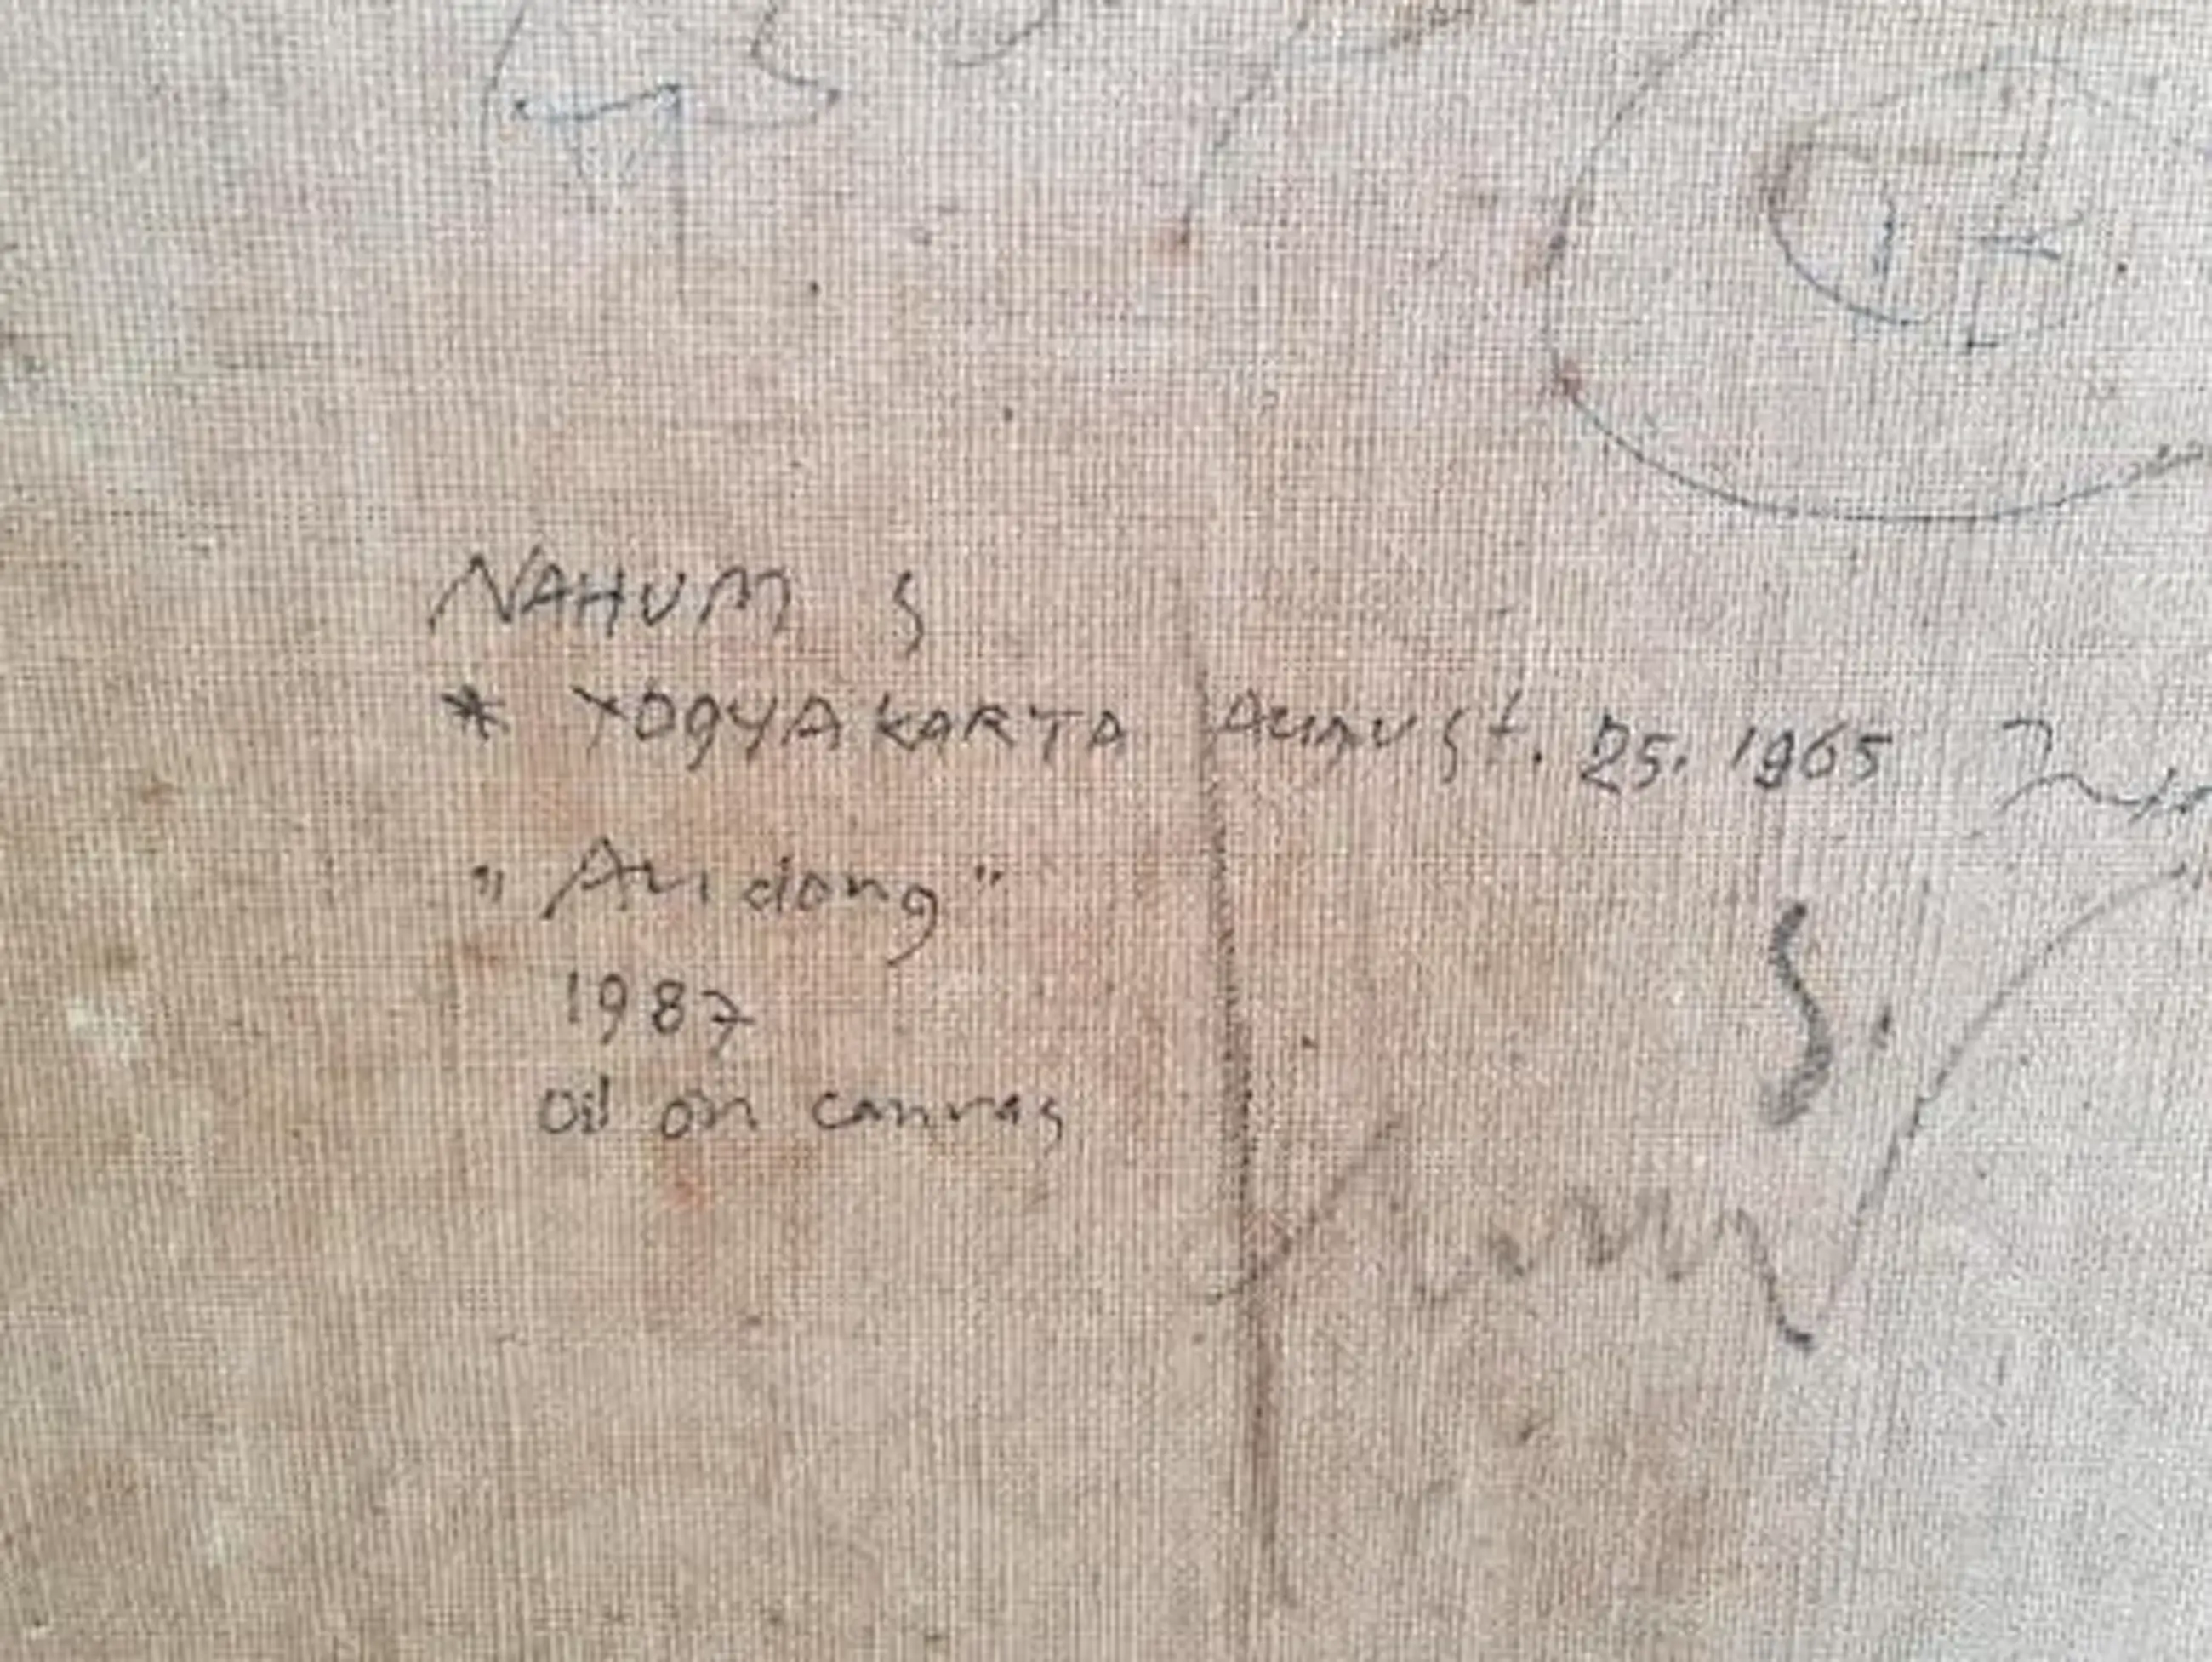 NAHUM S
* YOGYAKARTA AUGUST. 25. 1965
"Andong"
1987
oil on canvas
S.